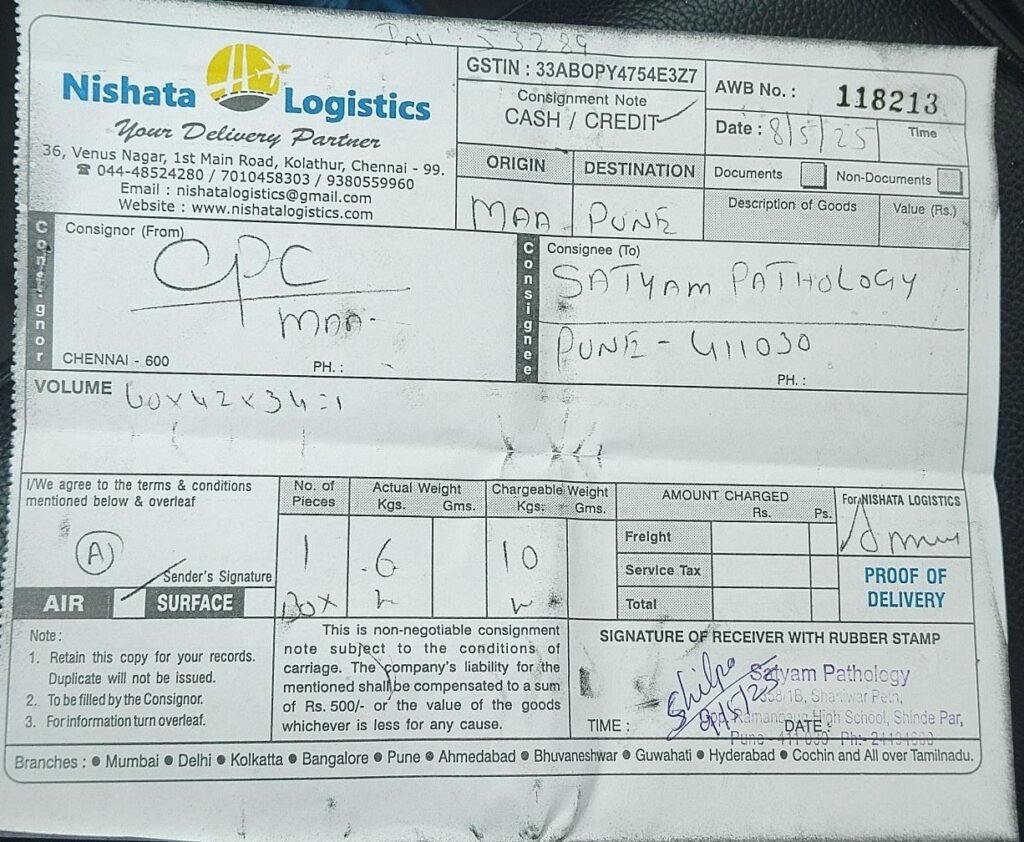 53289
Nishata Logistics
Your Delivery Partner
36, Venus Nagar, 1st Main Road, Kolathur, Chennai - 99.
☎ 044-48524280 / 7010458303 / 9380559960
Email : nishatalogistics@gmail.com
Website : www.nishatalogistics.com
GSTIN : 33ABOPY4754E3Z7
Consignment Note
CASH / CREDIT
AWB No. : 118213
Date : 8/5/25 Time
ORIGIN DESTINATION
MAA PUNE
Documents Non-Documents
Description of Goods Value (Rs.)
Consignor
Consignor (From)
CPC
MAA
CHENNAI - 600 PH. :
Consignee
Consignee (To)
SATYAM PATHOLOGY
PUNE - 411030
PH. :
VOLUME 60x42x34=1
I/We agree to the terms & conditions
mentioned below & overleaf
A
Sender's Signature
AIR SURFACE
No. of Pieces
1
Box
Actual Weight
Kgs. Gms.
6
Chargeable Weight
Kgs. Gms.
10
AMOUNT CHARGED
Rs. Ps.
Freight
Service Tax
Total
For NISHATA LOGISTICS
PROOF OF
DELIVERY
Note :
1. Retain this copy for your records.
Duplicate will not be issued.
2. To be filled by the Consignor.
3. For information turn overleaf.
This is non-negotiable consignment
note subject to the conditions of
carriage. The company's liability for the
mentioned shall be compensated to a sum
of Rs. 500/- or the value of the goods
whichever is less for any cause.
SIGNATURE OF RECEIVER WITH RUBBER STAMP
Shilpa
9/5/25
Satyam Pathology
Shaniwar Peth,
High School, Shinde Par,
TIME : DATE :
Branches : ● Mumbai ● Delhi ● Kolkatta ● Bangalore ● Pune ● Ahmedabad ● Bhuvaneshwar ● Guwahati ● Hyderabad ● Cochin and All over Tamilnadu.